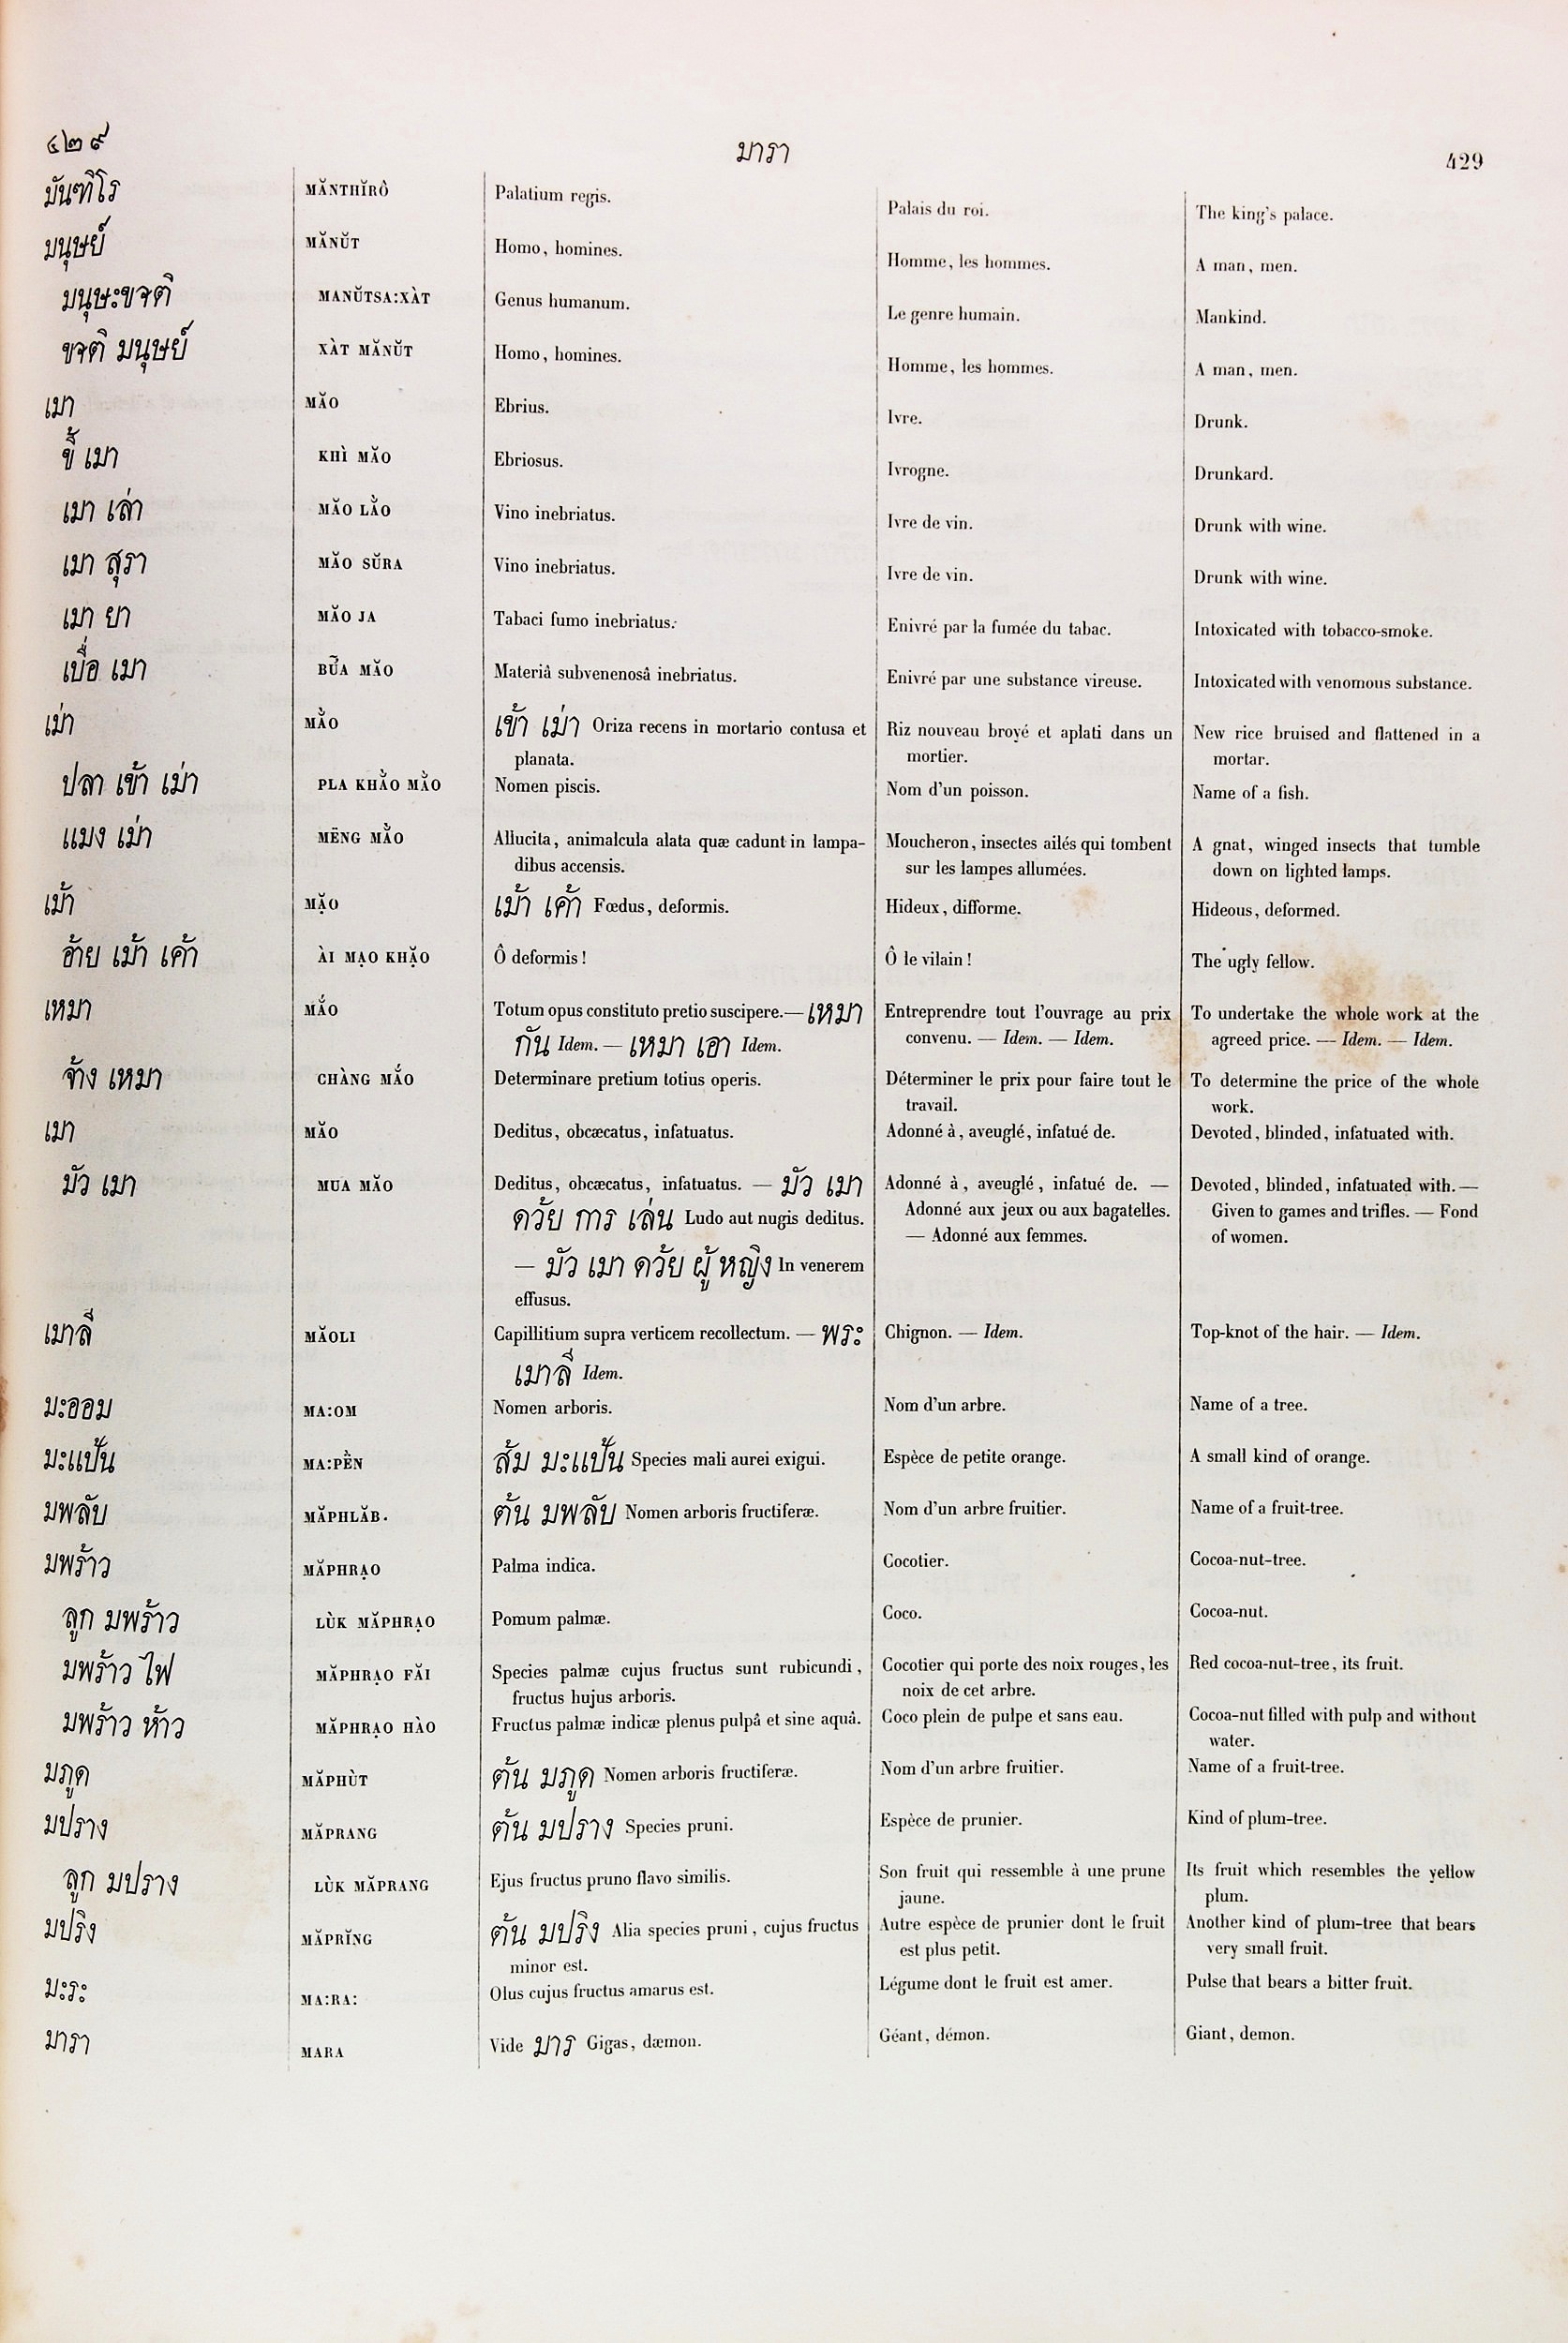 ๔๒๙ มารา 429
มันฑิโร MĂNTHĬRÔ Palatium regis. Palais du roi. The king's palace.
มนุษย์ MĂNŬT Homo, homines. Homme, les hommes. A man, men.
มนุษะชาติ MANŬTSA:XÀT Genus humanum. Le genre humain. Mankind.
ชาติ มนุษย์ XÀT MĂNŬT Homo, homines. Homme, les hommes. A man, men.
เมา MĂO Ebrius. Ivre. Drunk.
ขี้ เมา KHÌ MĂO Ebriosus. Ivrogne. Drunkard.
เมา เล่า MĂO LẰO Vino inebriatus. Ivre de vin. Drunk with wine.
เมา สุรา MĂO SŬRA Vino inebriatus. Ivre de vin. Drunk with wine.
เมา ยา MĂO JA Tabaci fumo inebriatus. Enivré par la fumée du tabac. Intoxicated with tobacco-smoke.
เบื่อ เมา BỮA MĂO Materiâ subvenenosâ inebriatus. Enivré par une substance vireuse. Intoxicated with venomous substance.
เม่า MẰO เข้า เม่า Oriza recens in mortario contusa et Riz nouveau broyé et aplati dans un New rice bruised and flattened in a
planata. mortier. mortar.
ปลา เข้า เม่า PLA KHẰO MẰO Nomen piscis. Nom d'un poisson. Name of a fish.
แมง เม่า MËNG MẰO Allucita, animalcula alata quæ cadunt in lampa- Moucheron, insectes ailés qui tombent A gnat, winged insects that tumble
dibus accensis. sur les lampes allumées. down on lighted lamps.
เม้า MẶO เม้า เค้า Fœdus, deformis. Hideux, difforme. Hideous, deformed.
อ้าย เม้า เค้า ÀI MẠO KHẶO Ô deformis! Ô le vilain! The ugly fellow.
เหมา MẮO Totum opus constituto pretio suscipere.— เหมา Entreprendre tout l'ouvrage au prix To undertake the whole work at the
กัน Idem. — เหมา เอา Idem. convenu. — Idem. — Idem. agreed price. — Idem. — Idem.
จ้าง เหมา CHÀNG MẮO Determinare pretium totius operis. Déterminer le prix pour faire tout le To determine the price of the whole
travail. work.
เมา MĂO Deditus, obcæcatus, infatuatus. Adonné à, aveuglé, infatué de. Devoted, blinded, infatuated with.
มัว เมา MUA MĂO Deditus, obcæcatus, infatuatus. — มัว เมา Adonné à, aveuglé, infatué de. — Devoted, blinded, infatuated with. —
ดว้ย การ เล่น Ludo aut nugis deditus. Adonné aux jeux ou aux bagatelles. Given to games and trifles. — Fond
— มัว เมา ดว้ย ผู้ หญิง In venerem — Adonné aux femmes. of women.
effusus.
เมาลี MĂOLI Capillitium supra verticem recollectum. — พระ Chignon. — Idem. Top-knot of the hair. — Idem.
เมาลี Idem.
มะออม MA:OM Nomen arboris. Nom d'un arbre. Name of a tree.
มะแป้น MA:PỀN ส้ม มะแป้น Species mali aurei exigui. Espèce de petite orange. A small kind of orange.
มพลับ MĂPHLĂB. ต้น มพลับ Nomen arboris fructiferæ. Nom d'un arbre fruitier. Name of a fruit-tree.
มพร้าว MĂPHRẠO Palma indica. Cocotier. Cocoa-nut-tree.
ลูก มพร้าว LÙK MĂPHRẠO Pomum palmæ. Coco. Cocoa-nut.
มพร้าว ไฟ MĂPHRẠO FĂI Species palmæ cujus fructus sunt rubicundi, Cocotier qui porte des noix rouges, les Red cocoa-nut-tree, its fruit.
fructus hujus arboris. noix de cet arbre.
มพร้าว ห้าว MĂPHRẠO HÀO Fructus palmæ indicæ plenus pulpâ et sine aquâ. Coco plein de pulpe et sans eau. Cocoa-nut filled with pulp and without
water.
มภูด MĂPHÙT ต้น มภูด Nomen arboris fructiferæ. Nom d'un arbre fruitier. Name of a fruit-tree.
มปราง MĂPRANG ต้น มปราง Species pruni. Espèce de prunier. Kind of plum-tree.
ลูก มปราง LÙK MĂPRANG Ejus fructus pruno flavo similis. Son fruit qui ressemble à une prune Its fruit which resembles the yellow
jaune. plum.
มปริง MĂPRĬNG ต้น มปริง Alia species pruni, cujus fructus Autre espèce de prunier dont le fruit Another kind of plum-tree that bears
minor est. est plus petit. very small fruit.
มะระ MA:RA: Olus cujus fructus amarus est. Légume dont le fruit est amer. Pulse that bears a bitter fruit.
มารา MARA Vide มาร Gigas, dæmon. Géant, démon. Giant, demon.